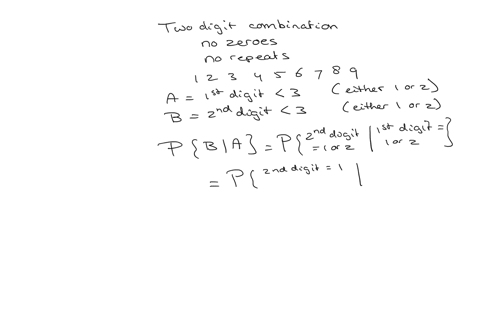 Two digit combination
no zeroes
no repeats
1 2 3 4 5 6 7 8 9
A = 1st digit < 3 (either 1 or 2)
B = 2nd digit < 3 (either 1 or 2)
P{B|A} = P{2nd digit = 1 or 2 | 1st digit = 1 or 2}
= P{2nd digit = 1 |